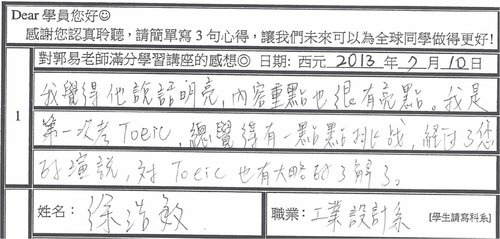 Dear 學員您好☺
感謝您認真聆聽，請簡單寫 3 句心得，讓我們未來可以為全球同學做得更好!
對郭易老師滿分學習講座的感想◎ 日期: 西元 2013 年 7 月 10 日
我覺得他說話明亮，內容重點也很有亮點。我是
1 第一次考 Toeic，總覺得有一點點挑战，經过了您
的演說，对 Toeic 也有大略的了解了。
姓名： 徐浩敏 職業： 工業設計系 [學生請寫科系]